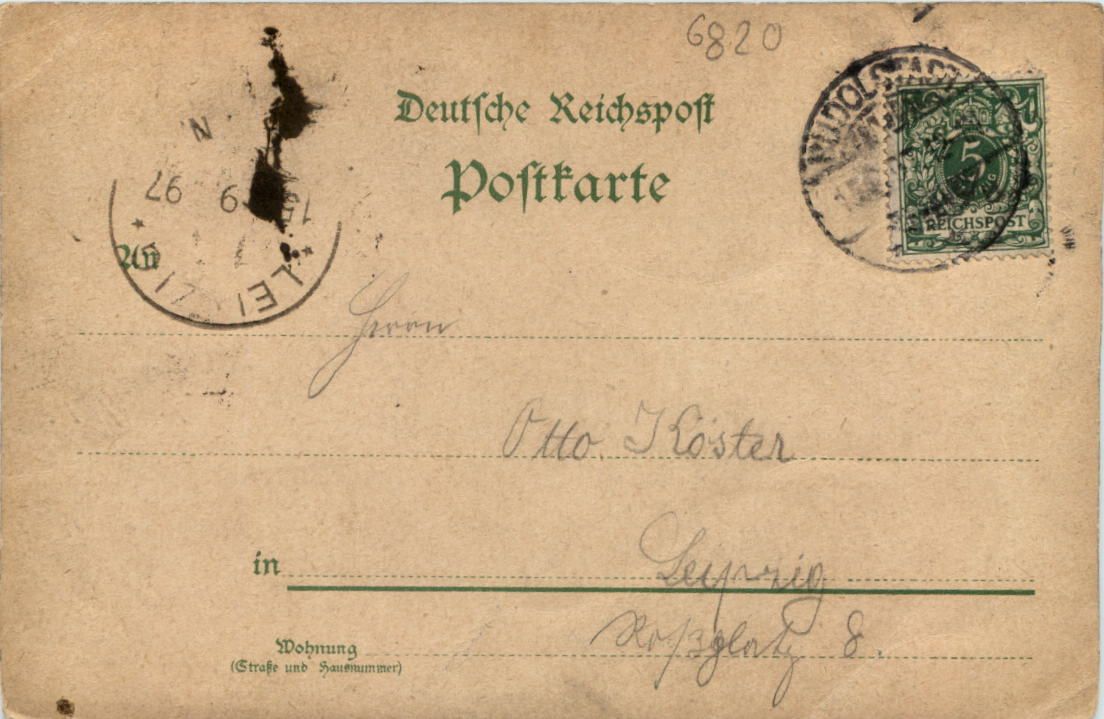 6820
Deutsche Reichspost
Postkarte
RUDOLSTADT
5
REICHSPOST
N
15 9 97
LEI ZI
An
Herrn
Otto Köster
in Leipzig
Wohnung Roßplatz 8.
(Straße und Hausnummer)